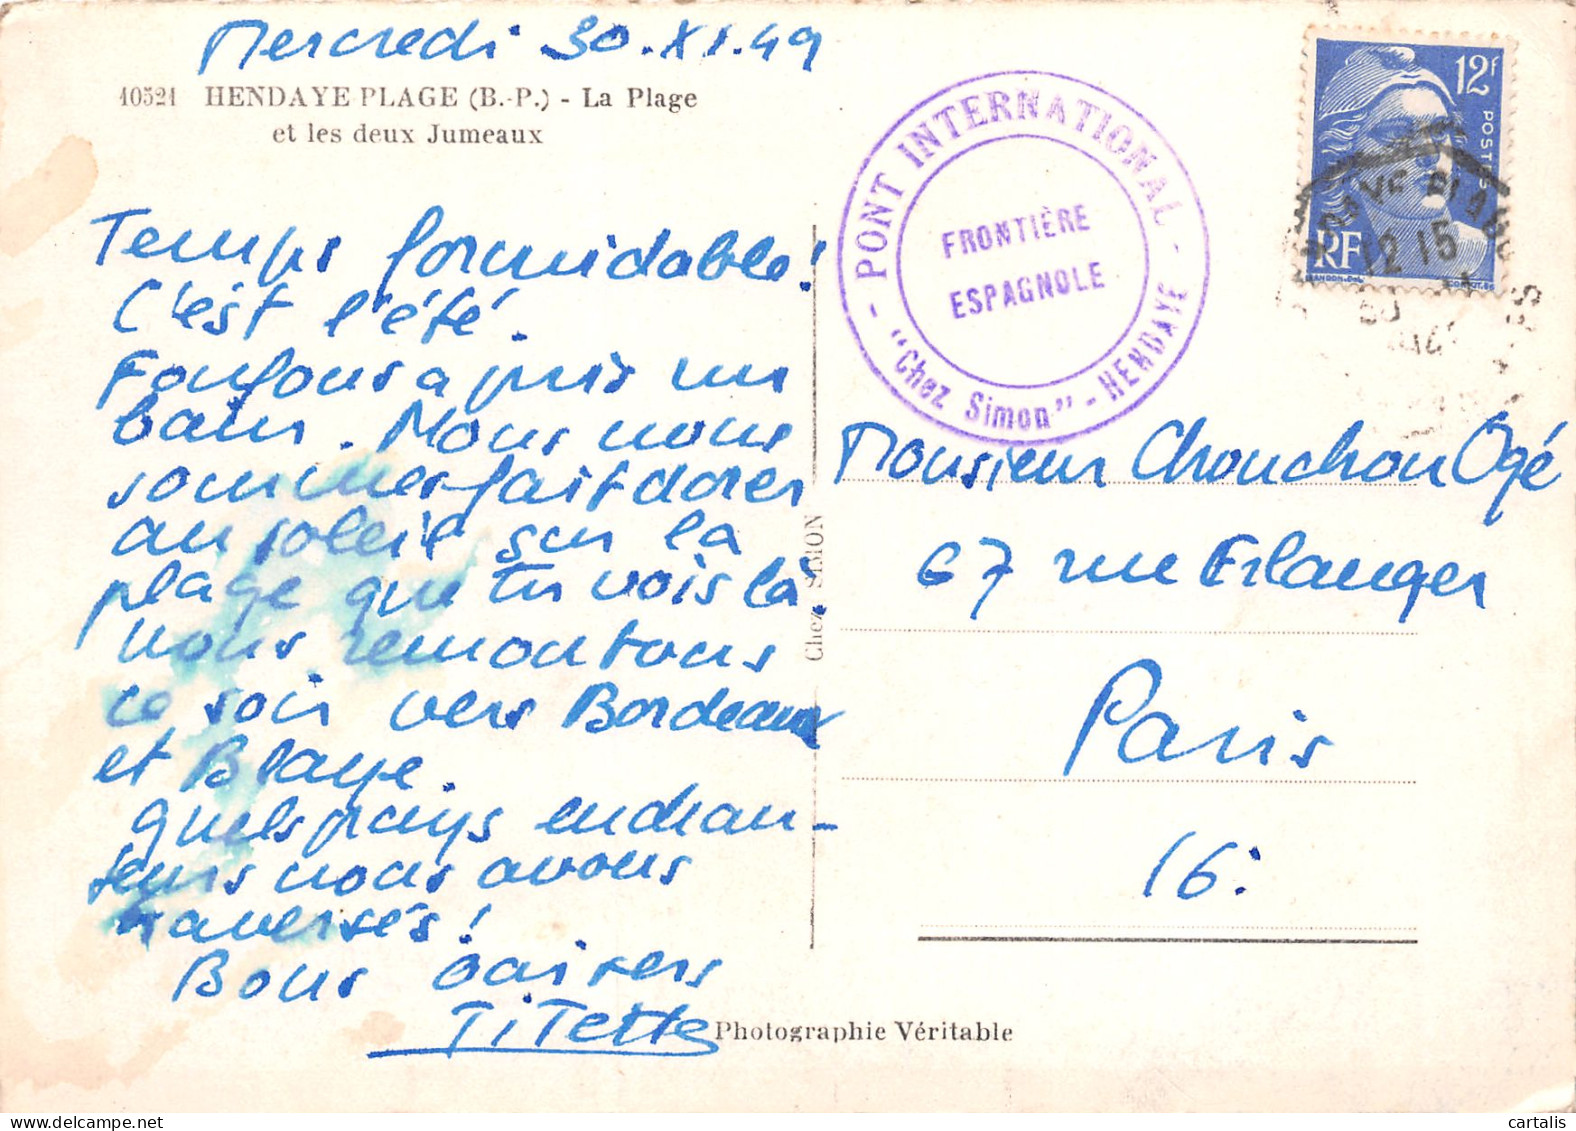 Mercredi 30.XI.49
10521 HENDAYE-PLAGE (B.-P.) - La Plage
et les deux Jumeaux
Temps formidable!
C'est l'été.
Foufous a pris un
bain. Nous nous
sommes fait dorer
au soleil sur la
plage que tu vois là.
nous remontons
ce soir vers Bordeaux
et Blaye.
quels pays enchan-
teurs nous avons
traversés!
Bons baisers
TiTette
Chez SIMON
PONT INTERNATIONAL -
FRONTIÈRE
ESPAGNOLE
- "Chez Simon" - HENDAYE
12f
POSTES
RF
GANDON.DEL
12 15
30
Monsieur Chouchou Ogé
67 rue Erlanger
Paris
16:
Photographie Véritable
cartalis